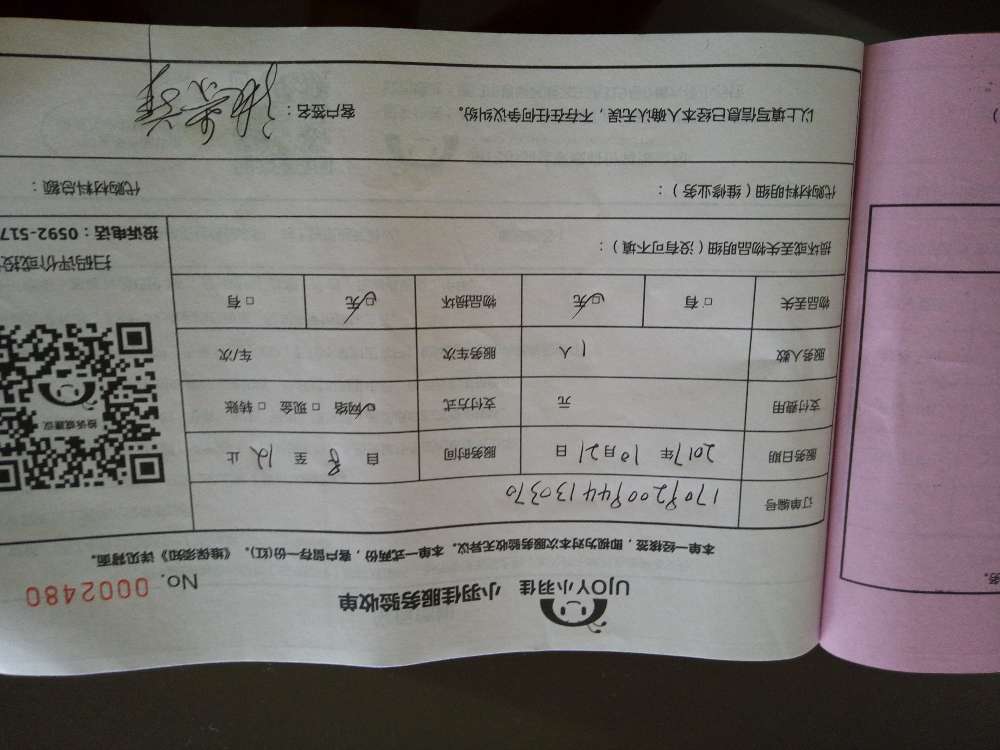 UJOY小羽佳 小羽佳服务验收单
No. 0002480
本单一经核签，即视为对本次服务验收无异议。本单一式两份，客户留存一份(红)。《维保须知》详见背面。
订单编号 1709200944130370
服务日期 2017年10月21日 服务时间 自 8 至 12 止
支付费用 元 支付方式 ☑网络 □现金 □转账
服务人数 1人 服务车次 车/次
物品丢失 □有 ☑无 物品损坏 ☑无 □有
损坏或丢失物品明细（没有可不填）：
代购材料明细（维修业务）：
代购材料总额：
以上填写信息已经本人确认无误，不存在任何争议纠纷。 客户签名：
投诉或建议
扫码评价或投
投诉电话：0592-517